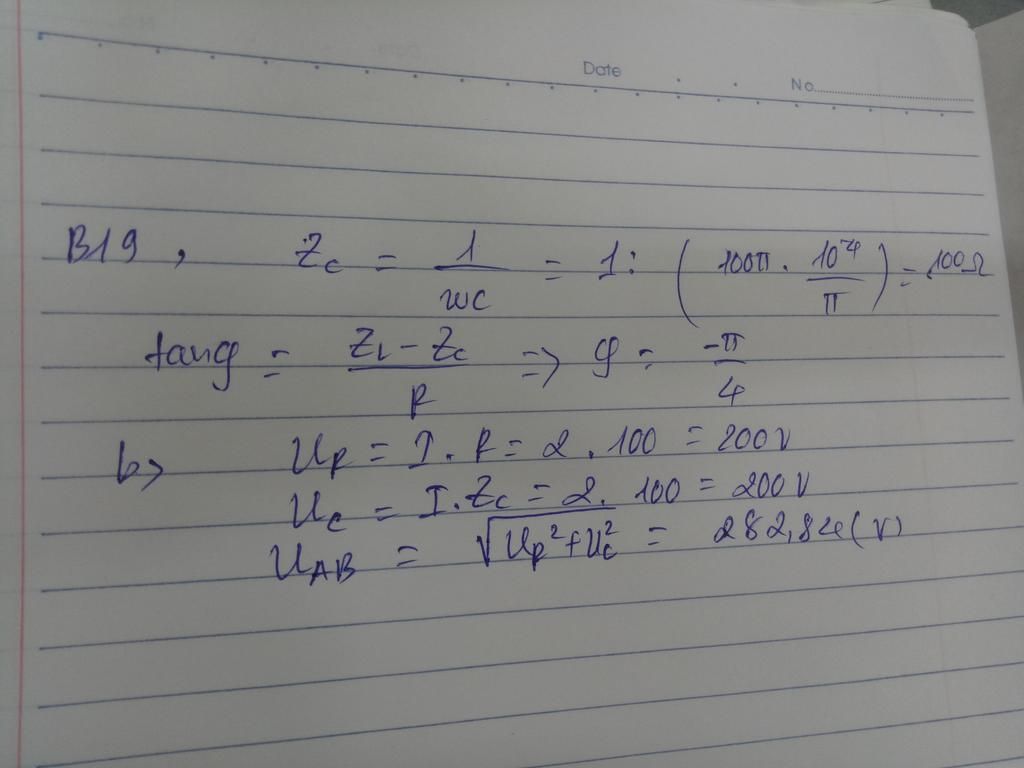 Date
No.
B19, Z_c = 1/wc = 1 : (100π . 10⁻⁴/π) = 100Ω
tanφ = (Z_L - Z_c)/R => φ = -π/4
b> U_R = I . R = 2 . 100 = 200V
U_C = I . Z_C = 2 . 100 = 200V
U_AB = √(U_R² + U_C²) = 282,84(V)